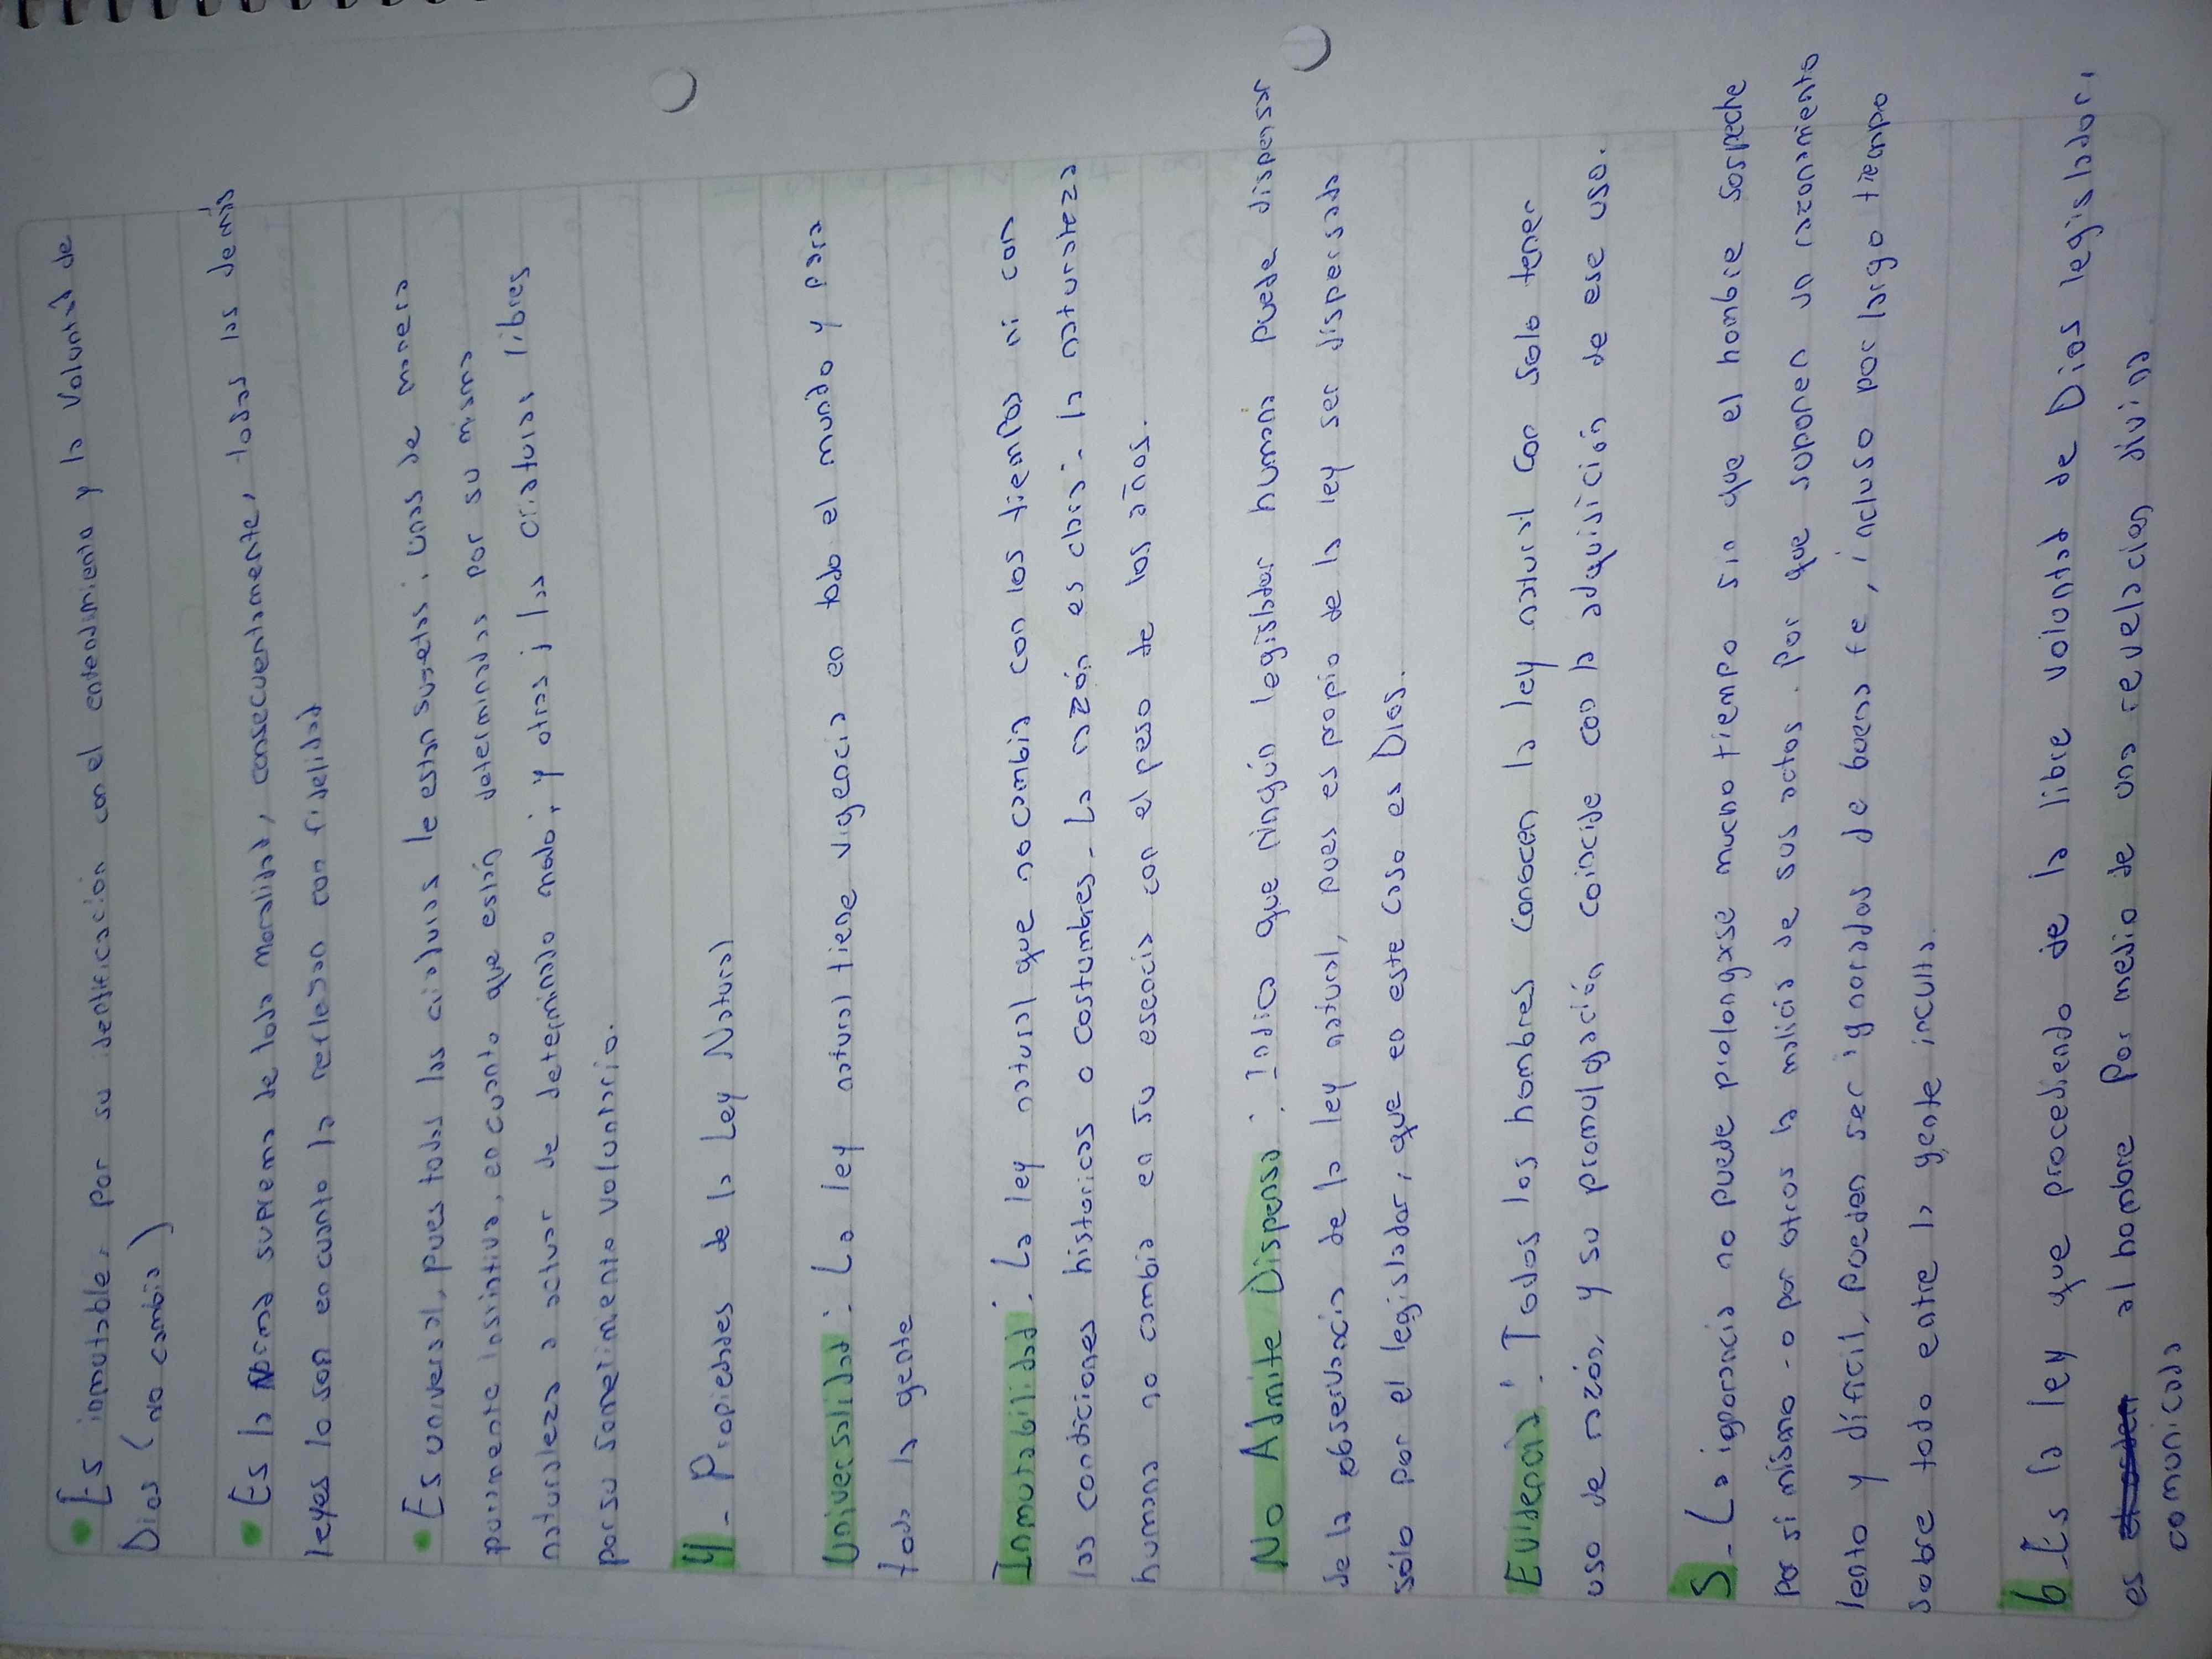 • Es inmutable, por su identificación con el entendimiento y la voluntad de
Dios (no cambia)
• Es la Norma suprema de toda moralidad, consecuentemente, todas las demás
leyes lo son en cuanto la reflejan con fidelidad
• Es universal, pues todas las criaturas le estan sujetas; unas de manera
puramente instintiva, en cuanto que están determinadas por su misma
naturaleza a actuar de determinado modo; y otras; las criaturas libres
por su sometimiento voluntario.
4- Propiedades de la Ley Natural
Universalidad: La ley natural tiene vigencia en todo el mundo y para
toda la gente
Inmutabilidad: La ley natural que no cambia con los tiempos ni con
las condiciones historicas o costumbres. La razón es clara: la naturaleza
humana no cambia en su esencia con el peso de los años.
No Admite Dispensa: Indica que ningún legislador humano puede dispensar
de la observancia de la ley natural, pues es propio de la ley ser dispensada
sólo por el legislador, que en este caso es Dios.
Evidencia: Todos los hombres conocen la ley natural con solo tener
uso de razón, y su promulgación coincide con la adquisición de ese uso.
5- La ignorancia no puede prolongarse mucho tiempo sin que el hombre sospeche
por si mismo - o por otros la malicia de sus actos. Por que suponen un razonamiento
lento y díficil, pueden ser ignorados de buena fe, incluso por largo tiempo
sobre todo entre la gente inculta.
6- Es la ley que procediendo de la libre voluntad de Dios legislador,
es al hombre por medio de una revelacion divina
comunicada